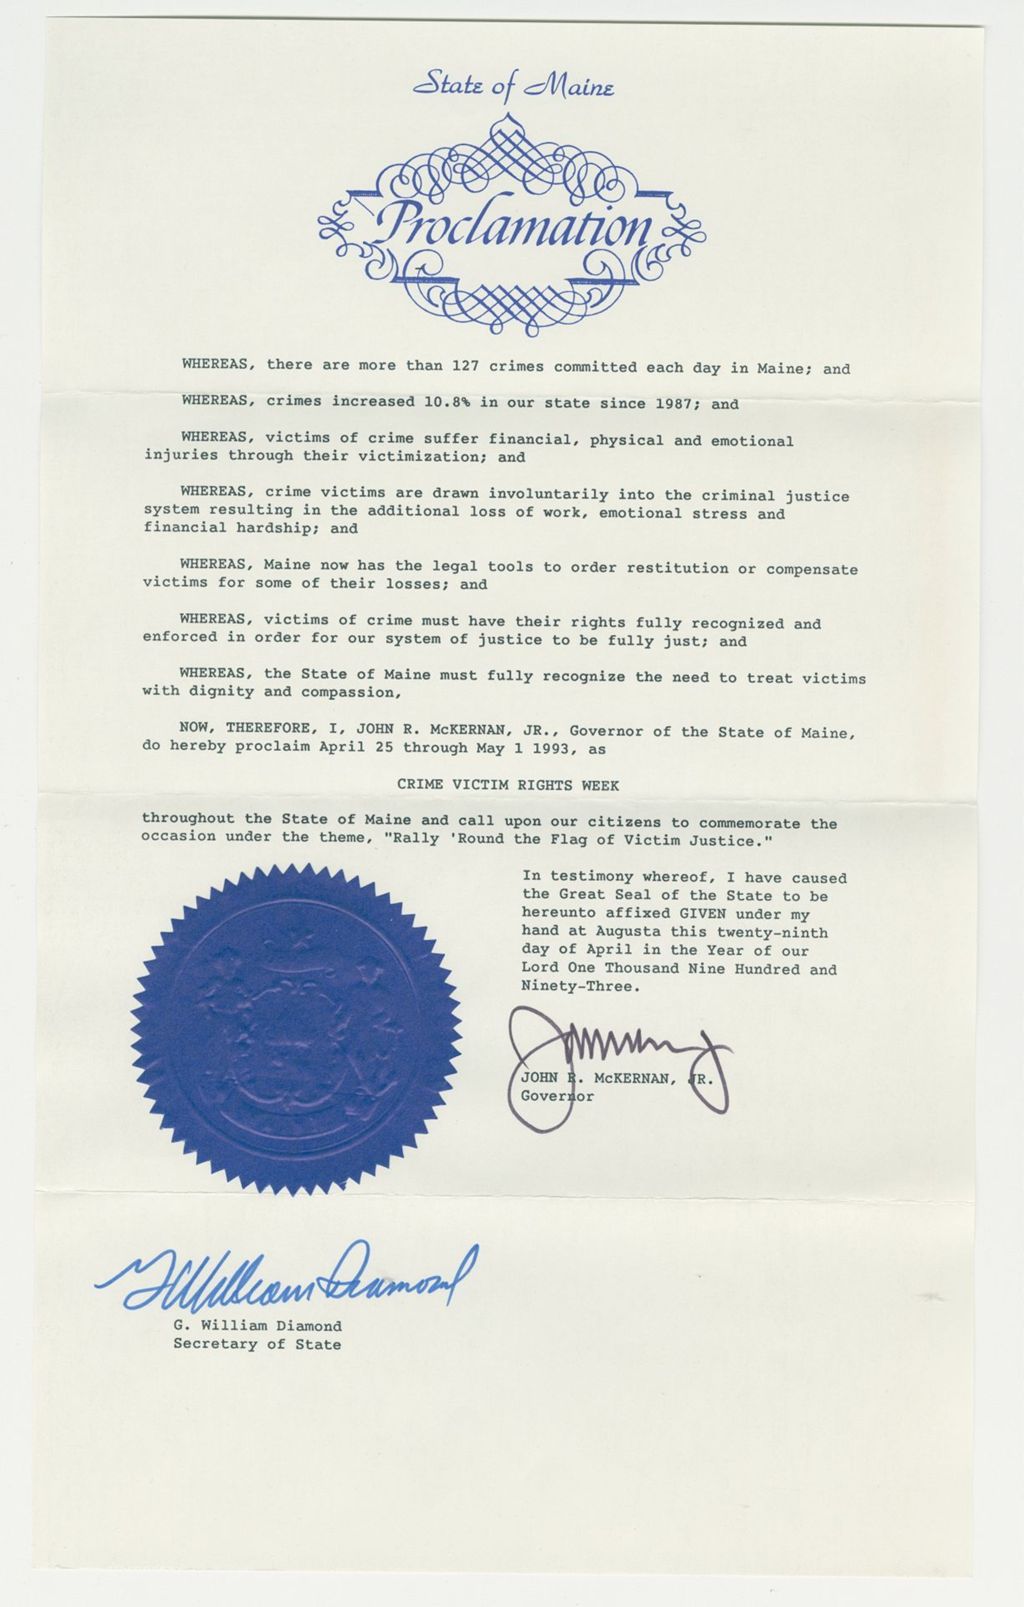 State of Maine
Proclamation
WHEREAS, there are more than 127 crimes committed each day in Maine; and
WHEREAS, crimes increased 10.8% in our state since 1987; and
WHEREAS, victims of crime suffer financial, physical and emotional
injuries through their victimization; and
WHEREAS, crime victims are drawn involuntarily into the criminal justice
system resulting in the additional loss of work, emotional stress and
financial hardship; and
WHEREAS, Maine now has the legal tools to order restitution or compensate
victims for some of their losses; and
WHEREAS, victims of crime must have their rights fully recognized and
enforced in order for our system of justice to be fully just; and
WHEREAS, the State of Maine must fully recognize the need to treat victims
with dignity and compassion,
NOW, THEREFORE, I, JOHN R. McKERNAN, JR., Governor of the State of Maine,
do hereby proclaim April 25 through May 1 1993, as
CRIME VICTIM RIGHTS WEEK
throughout the State of Maine and call upon our citizens to commemorate the
occasion under the theme, "Rally 'Round the Flag of Victim Justice."
In testimony whereof, I have caused
the Great Seal of the State to be
hereunto affixed GIVEN under my
hand at Augusta this twenty-ninth
day of April in the Year of our
Lord One Thousand Nine Hundred and
Ninety-Three.
JOHN R. McKERNAN, JR.
Governor
G William Diamond
G. William Diamond
Secretary of State